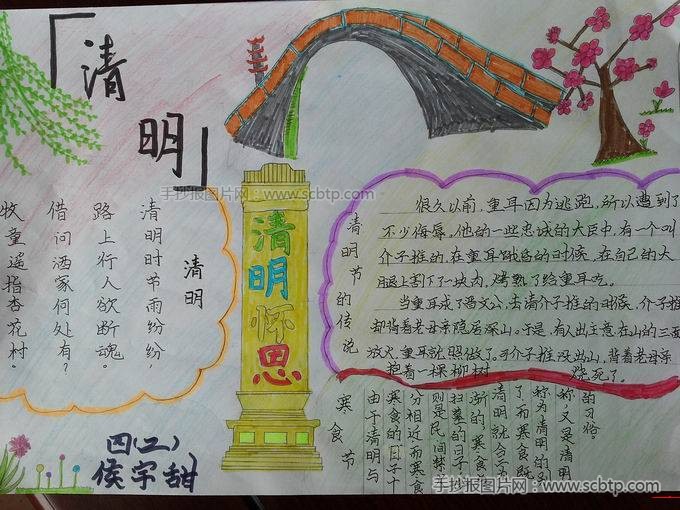 「清明」
清明
清明时节雨纷纷，
路上行人欲断魂。
借问洒家何处有？
牧童遥指杏花村。
四(二)
侯宇甜
清明怀思
清明节的传说
很久以前，重耳因为逃跑，所以遭到了
不少侮辱，他的一些忠诚的大臣中，有一个叫
介子推的，在重耳饿昏的时候，在自己的大
腿上割下了一块肉，烤熟了给重耳吃。
当重耳成了晋文公，去请介子推的时候，介子推
却背着老母亲隐居深山。于是，有人出主意在山的三面
放火，重耳就照做了。可介子推没出山，背着老母亲
抱着一棵柳树 烧死了。
寒食节
由于清明与
寒食的日子十
分相近，而寒食
则是民间禁
扫墓的日子，
渐的寒食
清明就合
了，而寒食既
称为清明的别
称，又是清明
的习俗。
手抄报图片网：www.scbtp.com
手抄报图片网：www.scbtp.com